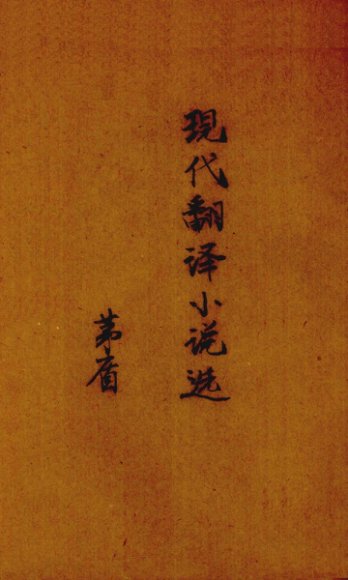 现代翻译小说选
茅盾